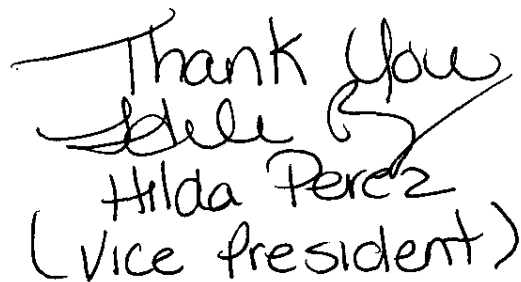 Thank You
Hilda Perez
(Vice President)